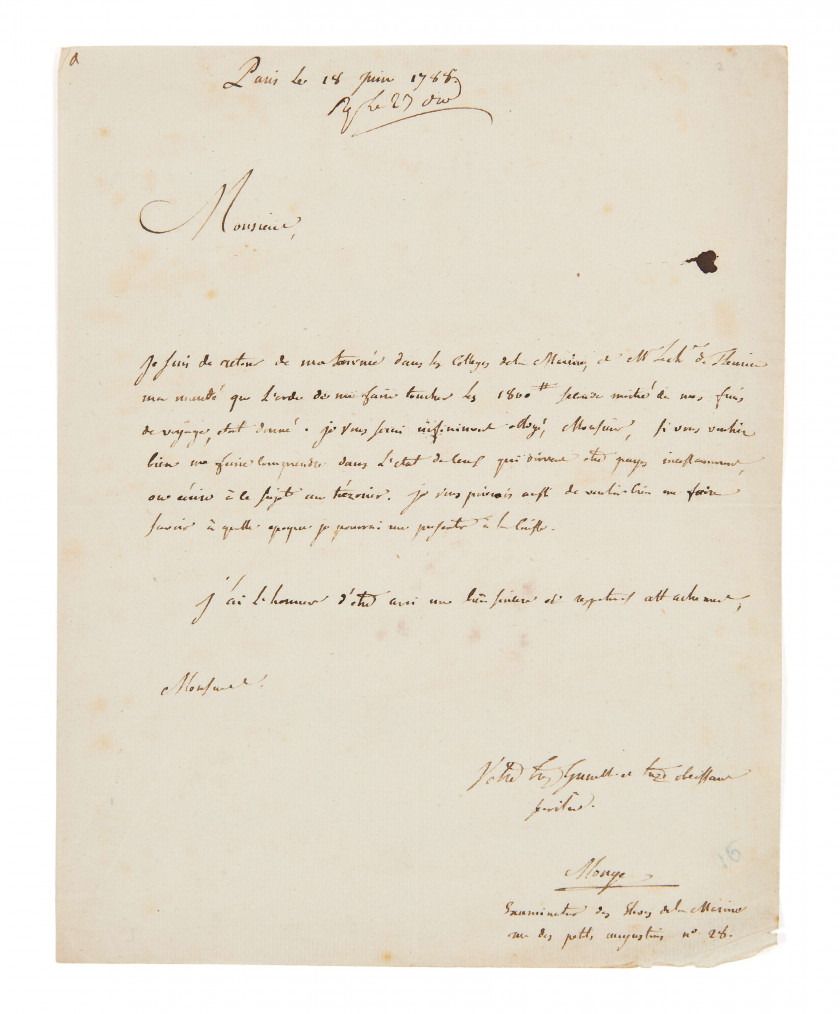 Paris le 18 juin 1788
Rp le 27 dud
Monsieur,
Je suis de retour de ma tournée dans les Colleges de la Marine, et Mr. le chr. de Fleurieu
m'a mandé que l'ordre de me faire toucher les 1800tt seconde moitié de mes frais
de voyage, etoit donné. je vous serai infiniment obligé, Monsieur, si vous voulez
bien me faire comprendre dans l'etat de ceux qui doivent être payés incessamment,
ou écrire à ce sujet au trézorier. je vous prierois aussi de vouloir bien me faire
savoir à quelle epoque je pourrai me presenter à la Caisse.
j'ai l'honneur d'être avec un bien sincere et respectueux attachement,
Monsieur
Votre très humble et très obeissant
serviteur.
Monge
Examinateur des Eleves de la Marine
rue des petits augustins n° 28.
16